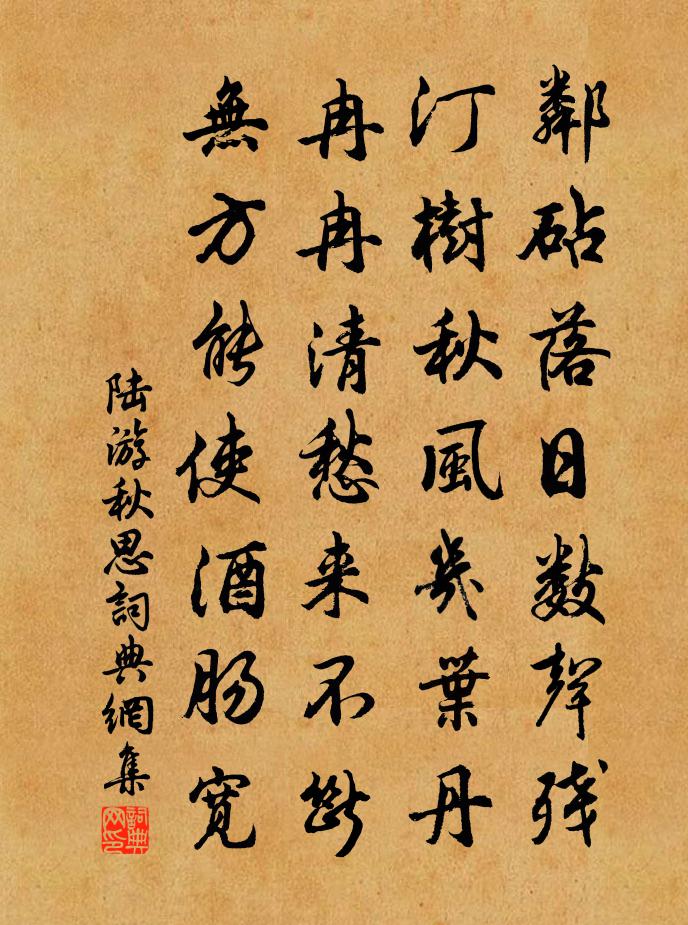 鄰砧落日數聲殘
汀樹秋風幾葉丹
冉冉清愁来不斷
無方能使酒腸寬
陆游秋思詞典網集
詞典网印